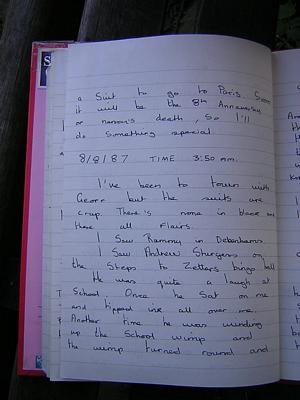 a Suit to go to Paris. Soon
it will be the 8th Anniversary
or nanan's death, So I'll
do Something special.
8/8/87 TIME 3:50 pm.
I've been to town with
Geoff but the suits are
crap. There's none in black and
there all Flairs.
I Saw Rammy in Debenhams
I Saw Andrew Sturgess on
the Steps to Zetters bingo hall
He was quite a laugh at
School. Once he Sat on me
and tipped ink all over me.
Another time he was winding
up the School wimp and
the wimp turned round and